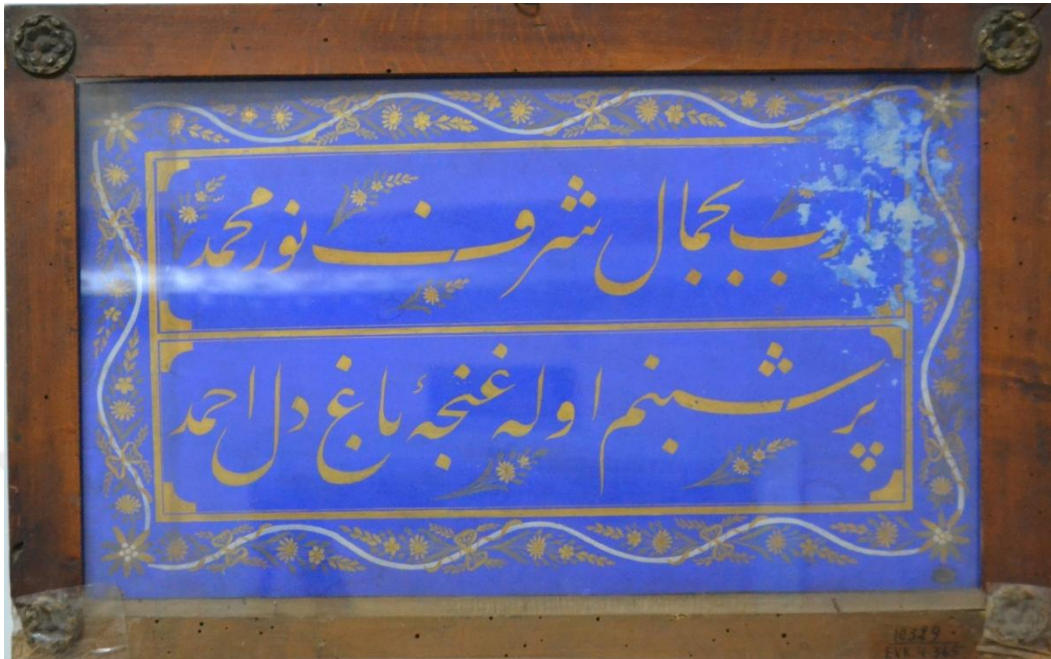 رب بجمال شرف نور محمد
پر شبنم اوله غنچهٔ باغ دل احمد
10329